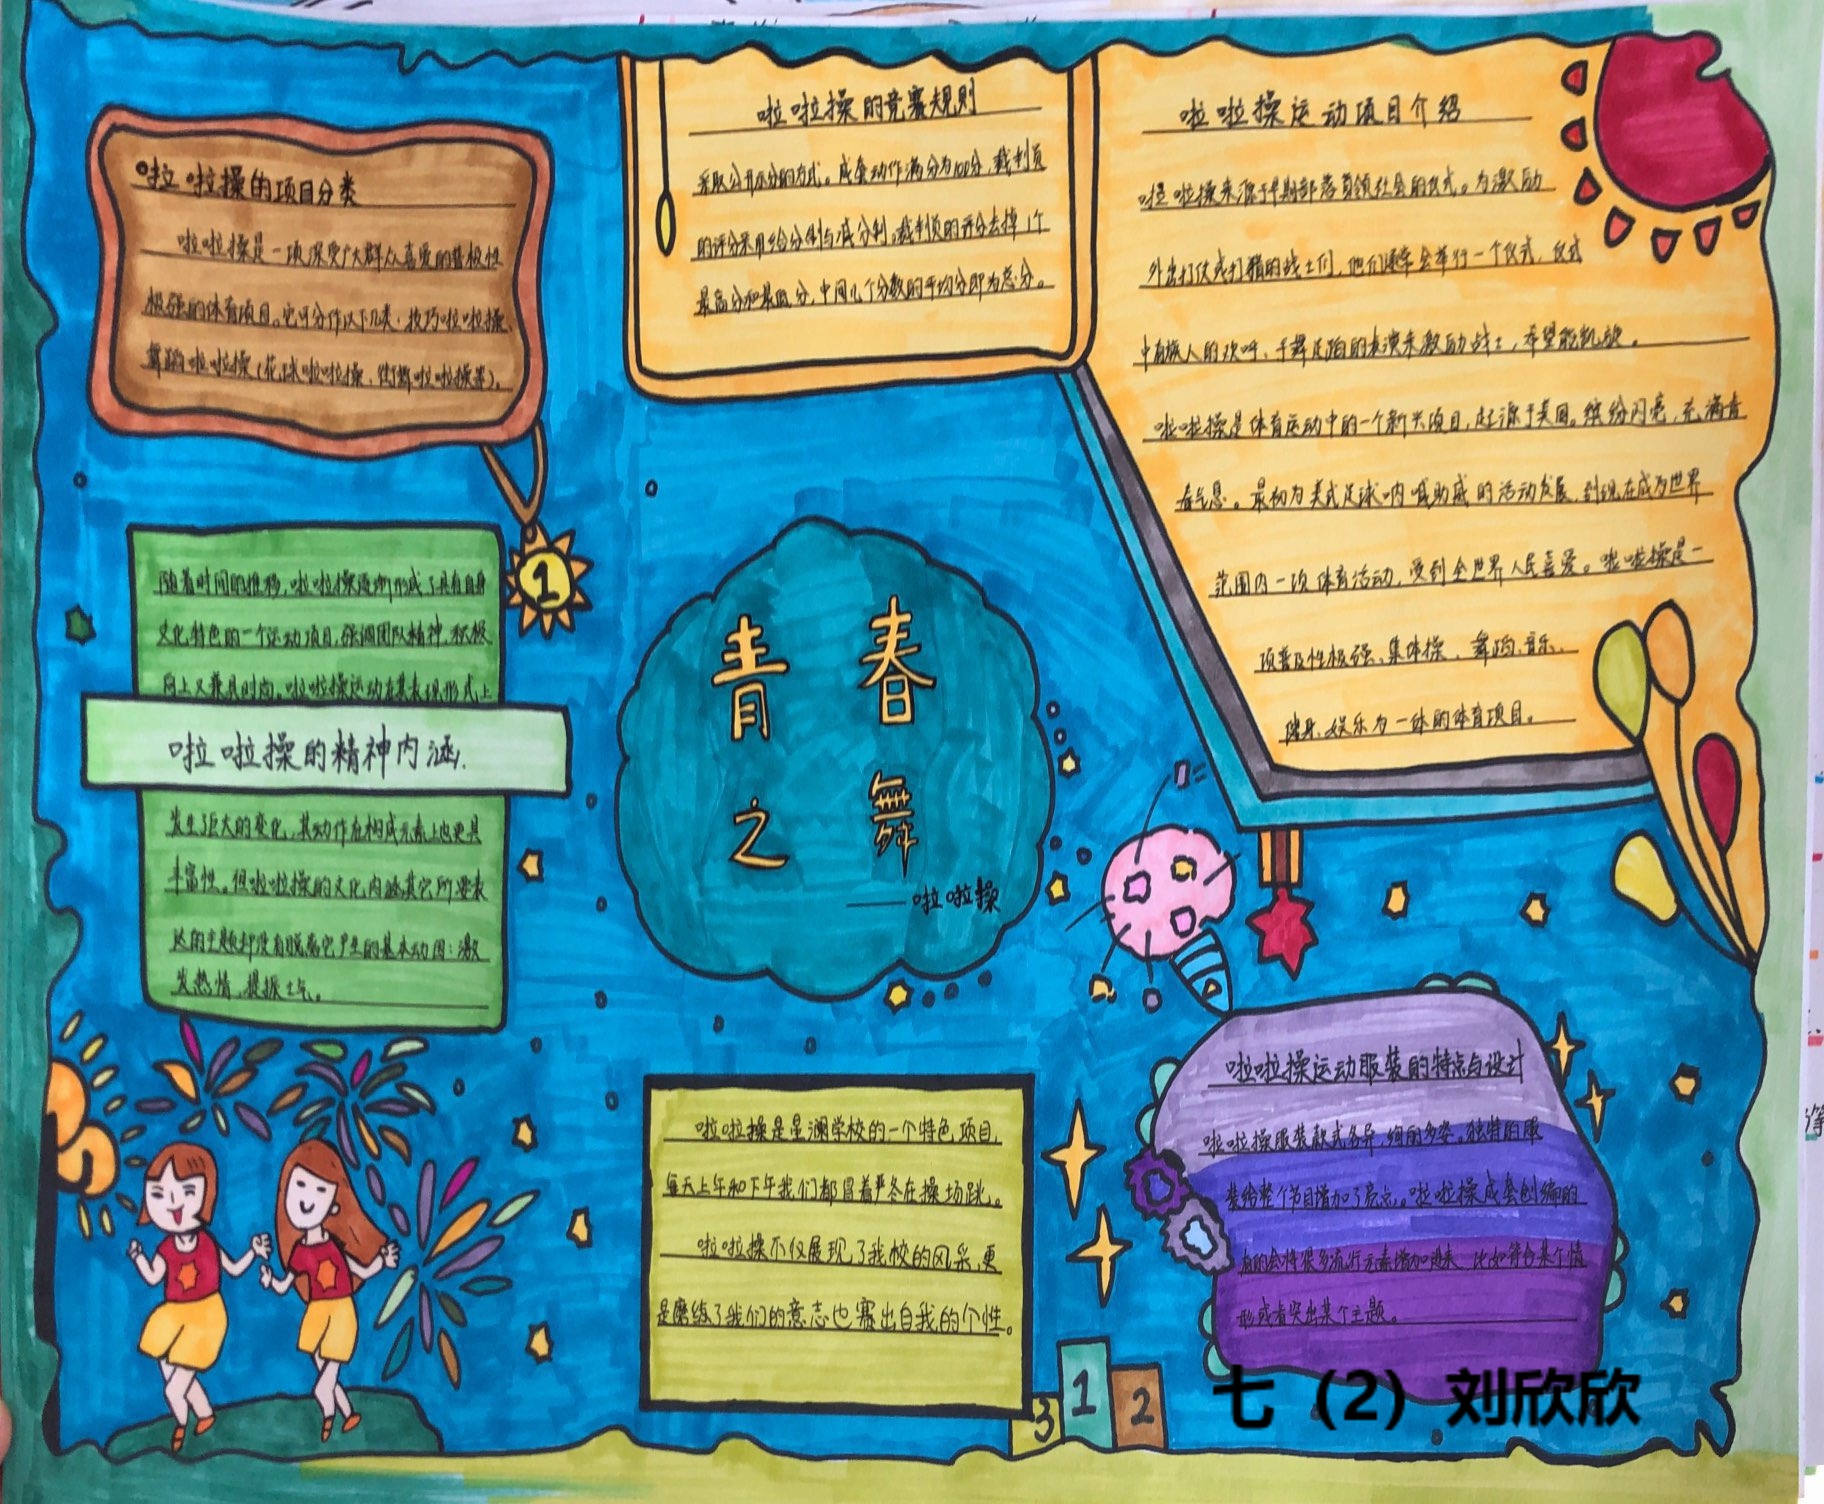 啦啦操的项目分类
啦啦操是一项深受广大群众喜爱的普极性
极强的体育项目。它可分作以下几类：技巧啦啦操、
舞蹈啦啦操（花球啦啦操、街舞啦啦操等）。
啦啦操的竞赛规则
采取公开示分的方式。成套动作满分为100分，裁判员
的评分采用给分制与减分制。裁判员的评分去掉1个
最高分和最低分，中间几个分数的平均分即为总分。
啦啦操运动项目介绍
啦啦操来源于早期部落首领社会的仪式。为激励
外出打仗或打猎的战士们，他们通常会举行一个仪式，仪式
中有族人的欢呼、手舞足蹈的表演来激励战士，希望能凯旋。
啦啦操是体育运动中的一个新兴项目，起源于美国。缤纷闪亮，充满青
春气息。最初为美式足球呐喊助威的活动发展，到现在成为世界
范围内一项体育活动，受到全世界人民喜爱。啦啦操是一
项普及性极强、集体操、舞蹈、音乐、
健身、娱乐为一体的体育项目。
1
随着时间的推移，啦啦操逐渐形成了具有自身
文化特色的一个运动项目，强调团队精神、积极
向上又兼具时尚。啦啦操运动在其表现形式上
啦啦操的精神内涵：
发生巨大的变化，其动作在构成元素上也更具
丰富性。但啦啦操的文化内涵其它所要表
达的主题却没有脱离它产生的基本动因：激
发热情、提振士气。
青春
之舞
——啦啦操
啦啦操是星澜学校的一个特色项目，
每天上午和下午我们都冒着严冬在操场跳。
啦啦操不仅展现了我校的风采，更
是磨练了我们的意志也赛出自我的个性。
啦啦操运动服装的特点与设计
啦啦操服装款式各异，绚的多姿。独特的服
装给整个节目增加了亮点。啦啦操成套创编的
有的会将很多流行元素增加进来，比如符合某个情
形或者突出某个主题。
3 1 2
七（2）刘欣欣